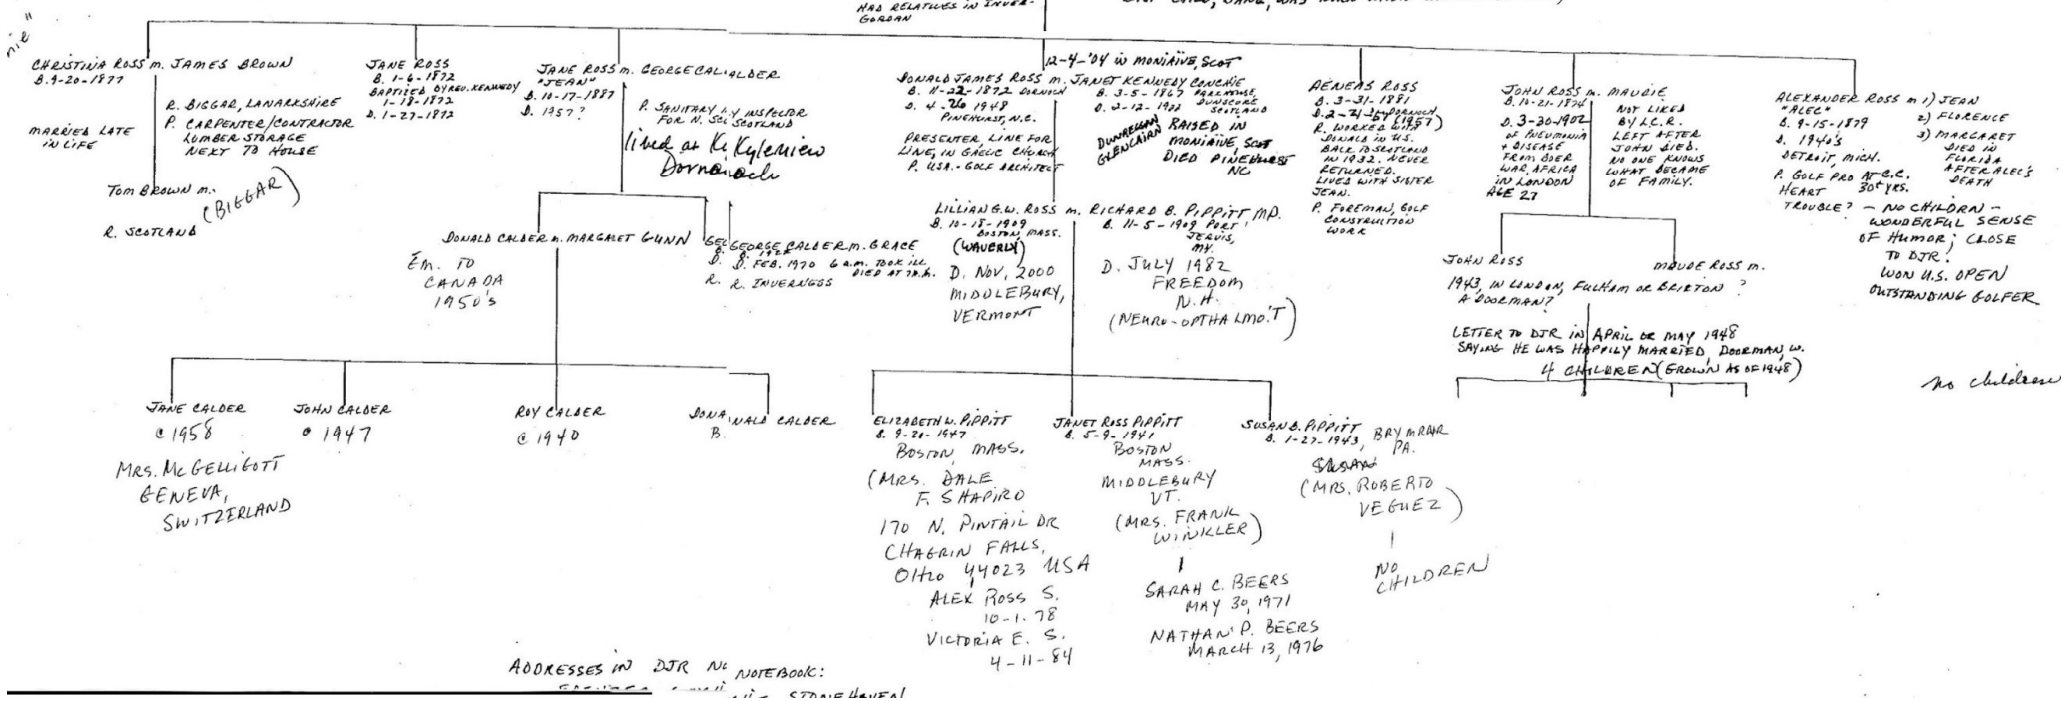 HAD RELATIVES IN INVER-
GORDAN
nie"
CHRISTINA ROSS m. JAMES BROWN
B. 9-20-1877
MARRIED LATE
IN LIFE
R. BIGGAR, LANARKSHIRE
P. CARPENTER/CONTRACTOR
LUMBER STORAGE
NEXT TO HOUSE
TOM BROWN m.
(BIGGAR)
R. SCOTLAND
JANE ROSS
B. 1-6-1872
BAPTIZED BY REV. KENNEDY
1-18-1872
D. 1-27-1872
JANE ROSS m. GEORGE CALALDER
"JEAN"
B. 10-17-1887
D. 1957?
P. SANITARY INSPECTOR
FOR N. SCOTLAND
lived at Kyleview
Dornoch
DONALD CALDER m. MARGARET GUNN
EM. TO
CANADA
1950's
GEORGE CALDER m. GRACE
D. FEB. 1970 6 a.m. TOOK ILL
DIED AT 7 A.M.
R. R. INVERNESS
JANE CALDER
c 1958
MRS. McGELLIGOTT
GENEVA,
SWITZERLAND
JOHN CALDER
c 1947
ROY CALDER
c 1940
DONA NALD CALDER
B.
12-4-'04 in MONIAIVE, SCOT
DONALD JAMES ROSS m. JANET KENNEDY CONCHIE
B. 11-22-1872 DORNOCH
D. 4-26 1948
PINEHURST, N.C.
PRESENTER, LINE FOR
LINE, IN GAELIC CHURCH
P. USA. - GOLF ARCHITECT
B. 3-5-1867
DUNSCORE
SCOTLAND
D. 2-12-1922
DUNREGGAN
GLENCAIRN
RAISED IN
MONIAIVE, SCOT
DIED PINEHURST
NC
LILLIAN G.W. ROSS m. RICHARD B. PIPPITT MD.
B. 10-18-1909
BOSTON, MASS.
(WAVERLY)
D. NOV, 2000
MIDDLEBURY,
VERMONT
B. 11-5-1909 PORT
JERVIS,
NY.
D. JULY 1982
FREEDOM
N.H.
(NEURO-OPTHALMO.'T)
ELIZABETH W. PIPPITT
B. 9-20-1947
BOSTON, MASS.
(MRS. DALE
F. SHAPIRO
170 N. PINTAIL DR
CHAGRIN FALLS,
OHIO 44023 USA
ALEX ROSS S.
10-1-78
VICTORIA E. S.
4-11-84
JANET ROSS PIPPITT
B. 5-9-1941
BOSTON
MASS.
MIDDLEBURY
VT.
(MRS. FRANK
WINKLER)
SARAH C. BEERS
MAY 30, 1971
NATHAN P. BEERS
MARCH 13, 1976
SUSAN B. PIPPITT
B. 1-27-1943, BRYMAWR
PA.
SUSAN
(MRS. ROBERTO
VEGUEZ)
NO
CHILDREN
AENEAS ROSS
B. 3-31-1881
D. 2-21- DORNOCH
(1957)
R. WORKED WITH
DONALD IN U.S.
BACK TO SCOTLAND
IN 1932. NEVER
RETURNED.
LIVED WITH SISTER
JEAN.
P. FOREMAN, GOLF
CONSTRUCTION
WORK
JOHN ROSS m. MAUDIE
B. 10-21-1874
D. 3-30-1902
OF PNEUMONIA
+ DISEASE
FROM BOER
WAR, AFRICA
IN LONDON
AGE 27
NOT LIKED
BY L.C.R.
LEFT AFTER
JOHN DIED.
NO ONE KNOWS
WHAT BECAME
OF FAMILY.
JOHN ROSS
1943, IN LONDON, FULHAM OR BRIXTON ?
A DOORMAN?
MAUDE ROSS m.
LETTER TO DJR IN APRIL OR MAY 1948
SAYING HE WAS HAPPILY MARRIED, DOORMAN, W.
4 CHILDREN (GROWN AS OF 1948)
ALEXANDER ROSS m 1) JEAN
"ALEC"
2) FLORENCE
3) MARGARET
DIED IN
FLORIDA
AFTER ALEC'S
DEATH
B. 9-15-1879
D. 1940's
DETROIT, MICH.
P. GOLF PRO AT C.C.
30+ YRS.
HEART
TROUBLE?
- NO CHILDREN -
WONDERFUL SENSE
OF HUMOR; CLOSE
TO DJR.
WON U.S. OPEN
OUTSTANDING GOLFER
no children
ADDRESSES IN DJR NOTEBOOK:
STONEHAVEN